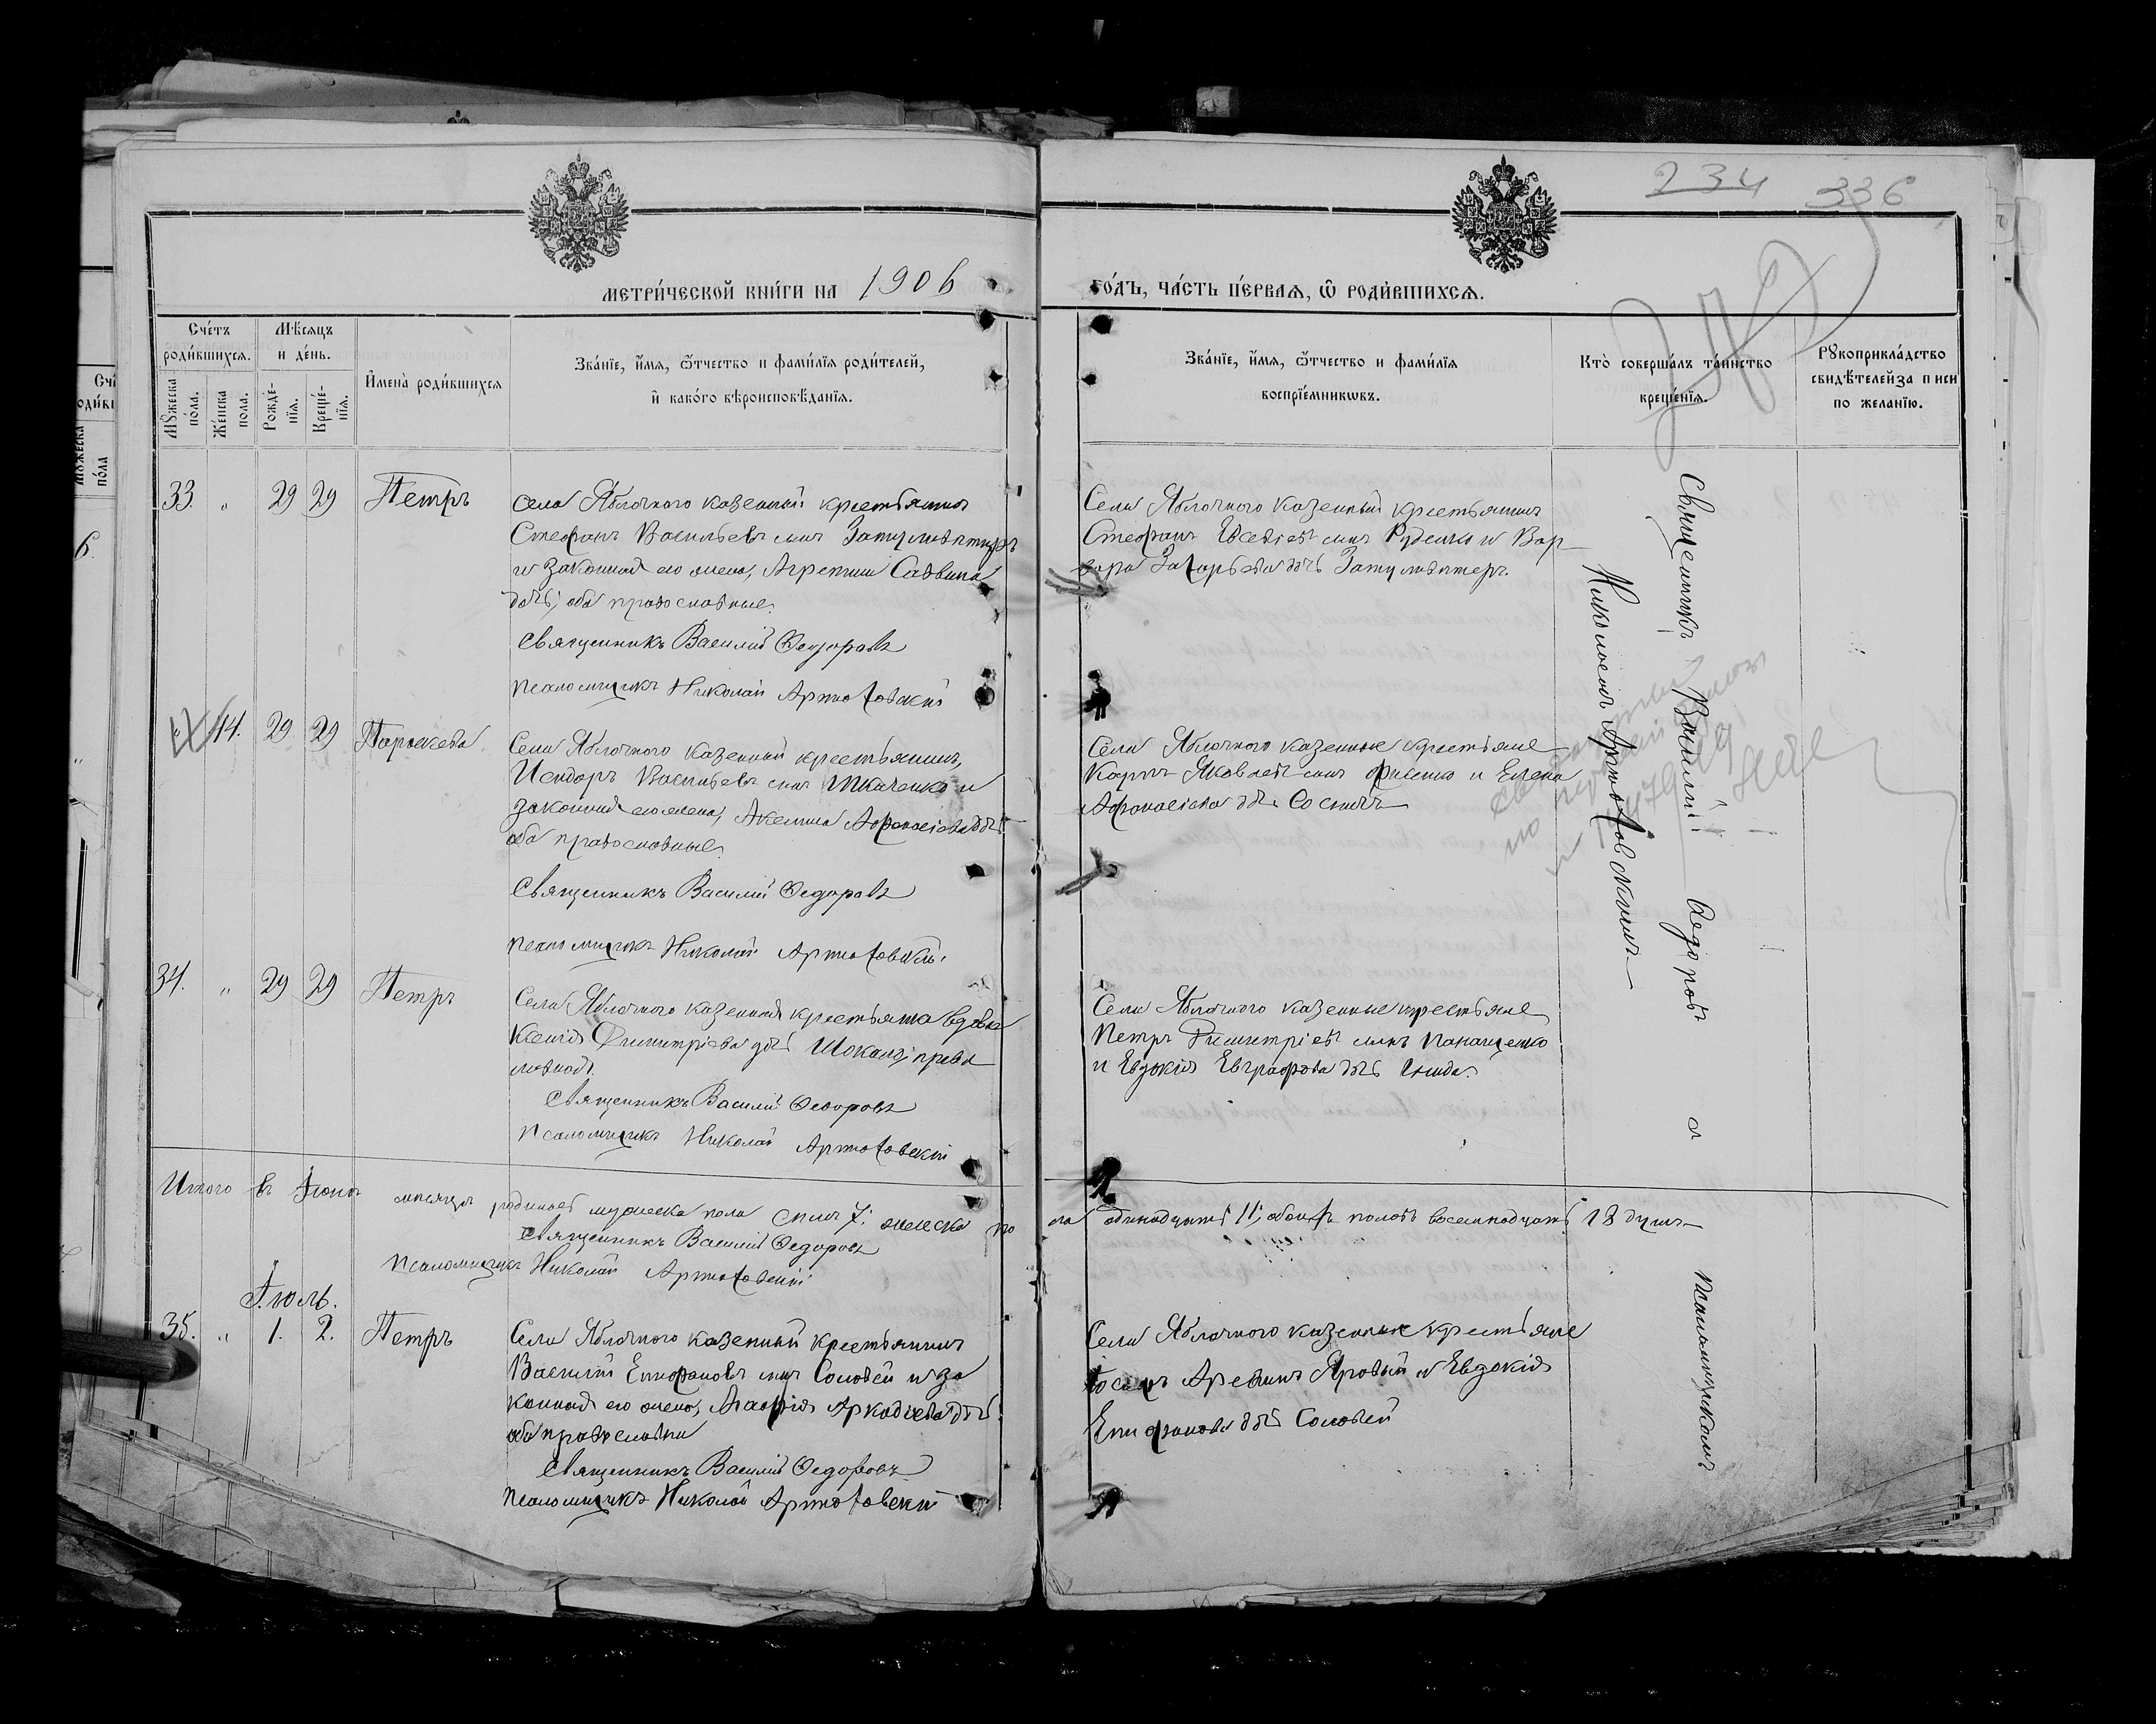 234 336
МЕТРИ́ЧЕСКОЙ КНИ́ГИ НА 1906
ГОДЪ, ЧА́СТЬ ПЕ́РВАѦ, Ѿ РОДИ́ВШИХСѦ.
Сче́тъ
роди́вшихсѧ.
Мѣ́сяцъ
и де́нь.
Мꙋ́жеска
по́ла.
Же́нска
пола.
Рожде́-
нїѧ.
Креще́-
нїѧ.
И҆мена̀ роди́вшихсѧ
Зва́нїе, и҆́мѧ, ѻ҆́тчество и фами́лїѧ роди́телей,
и҆ како́гѡ вѣроисповѣ́данїѧ.
Зва́нїе, и҆́мѧ, ѻ҆́тчество и фами́лїѧ
воспрїе́мникѡвъ.
Кто̀ соверша́лъ та́инство
креще́нїѧ.
Рꙋкоприкла́дство
свидѣ́телей за писи
по жела́нїю.
33. " 29 29 Петръ
Села Яблочного казенный крестьянинъ
Стефанъ Васильевъ сынъ
и законная его жена, Савина
дочь; оба православные.
Священникъ Василій Федоровъ
Псаломщикъ Николай Артюховскій
Села Яблочного казенный крестьянинъ
Стефанъ сынъ Руденко и Вар-
вара Захарьева дочь
" 14. 29 29 Параскева
Села Яблочного казенный крестьянинъ,
Исидоръ Васильевъ сынъ Ткаченко и
законная его жена, Акелина Афанасіева дочь
оба православные.
Священникъ Василій Федоровъ
Псаломщикъ Николай Артюховскій.
Села Яблочного казенные крестьяне
Карпъ Яковлевъ сынъ и Елена
Афанасіева дочь
34. " 29 29 Петръ
Села Яблочного казенная крестьянка вдова
Ксенія Димитріева дочь православная.
Священникъ Василій Федоровъ
Псаломщикъ Николай Артюховскій
Села Яблочного казенные крестьяне
Петръ Димитріевъ сынъ Панащенко
и Евдокія Евграфова дочь
Итого въ Іюнѣ мѣсяцѣ родилось мужеска пола семь 7; женска по
ла одинадцать 11; обоихъ половъ восемнадцать 18 душъ
Священникъ Василій Федоровъ
Псаломщикъ Николай Артюховскій
Іюль.
35. " 1. 2. Петръ
Села Яблочного казенный крестьянинъ
Василій Епифановъ сынъ Соловей и за
конная его жена, Аркадіева дочь
оба православны
Священникъ Василій Федоровъ
Псаломщикъ Николай Артюховскій
Села Яблочного казенные крестьяне
Яровый и Евдокія
Епифанова дочь Соловей
Священникъ Василій Федоровъ съ псаломщикомъ
Николаемъ Артюховскимъ